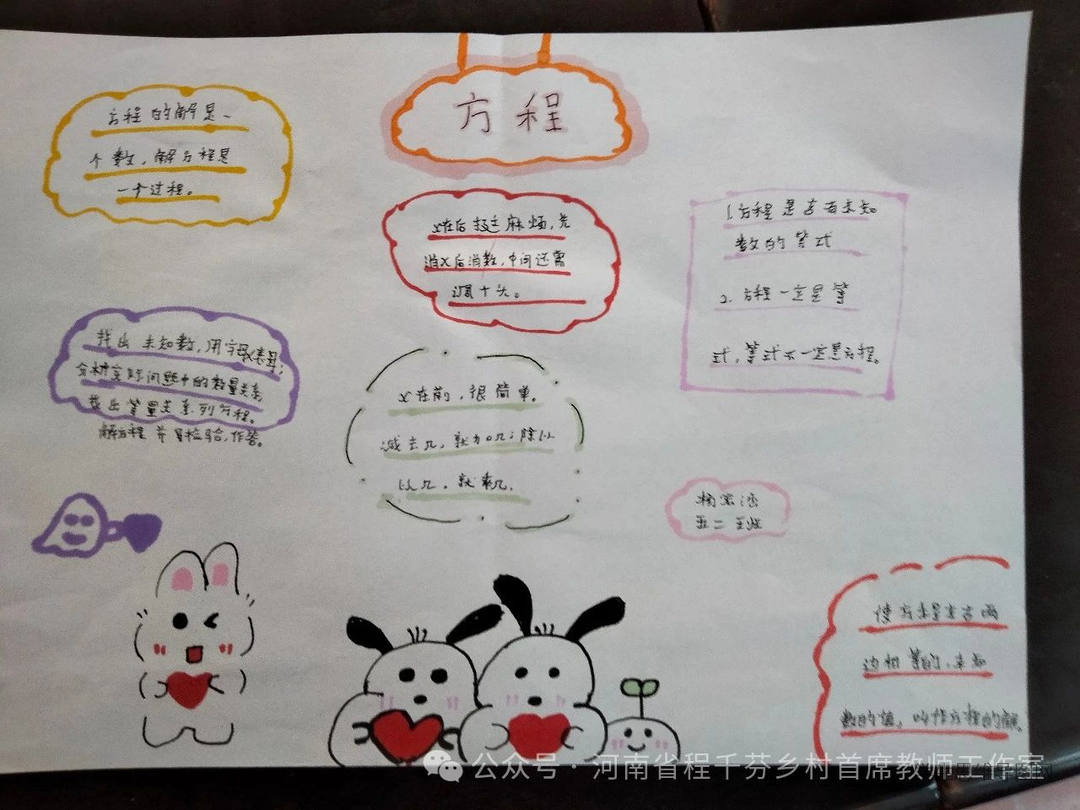 方程
方程的解是一
个数，解方程是
一个过程。
x在后挺麻烦，先
消x后消数，中间还需
调个头。
1.方程是含有未知
数的等式
2. 方程一定是等
式，等式不一定是方程。
找出未知数，用字母x表示；
分析实际问题中的数量关系，
找出等量关系列方程。
解方程并且检验，作答。
x在前，很简单。
减去几，就加几；除以
以几，就乘几.
五二班
使方程左右两
边相等的，未知
数的值，叫作方程的解。
公众号·河南省程千芬乡村首席教师工作室